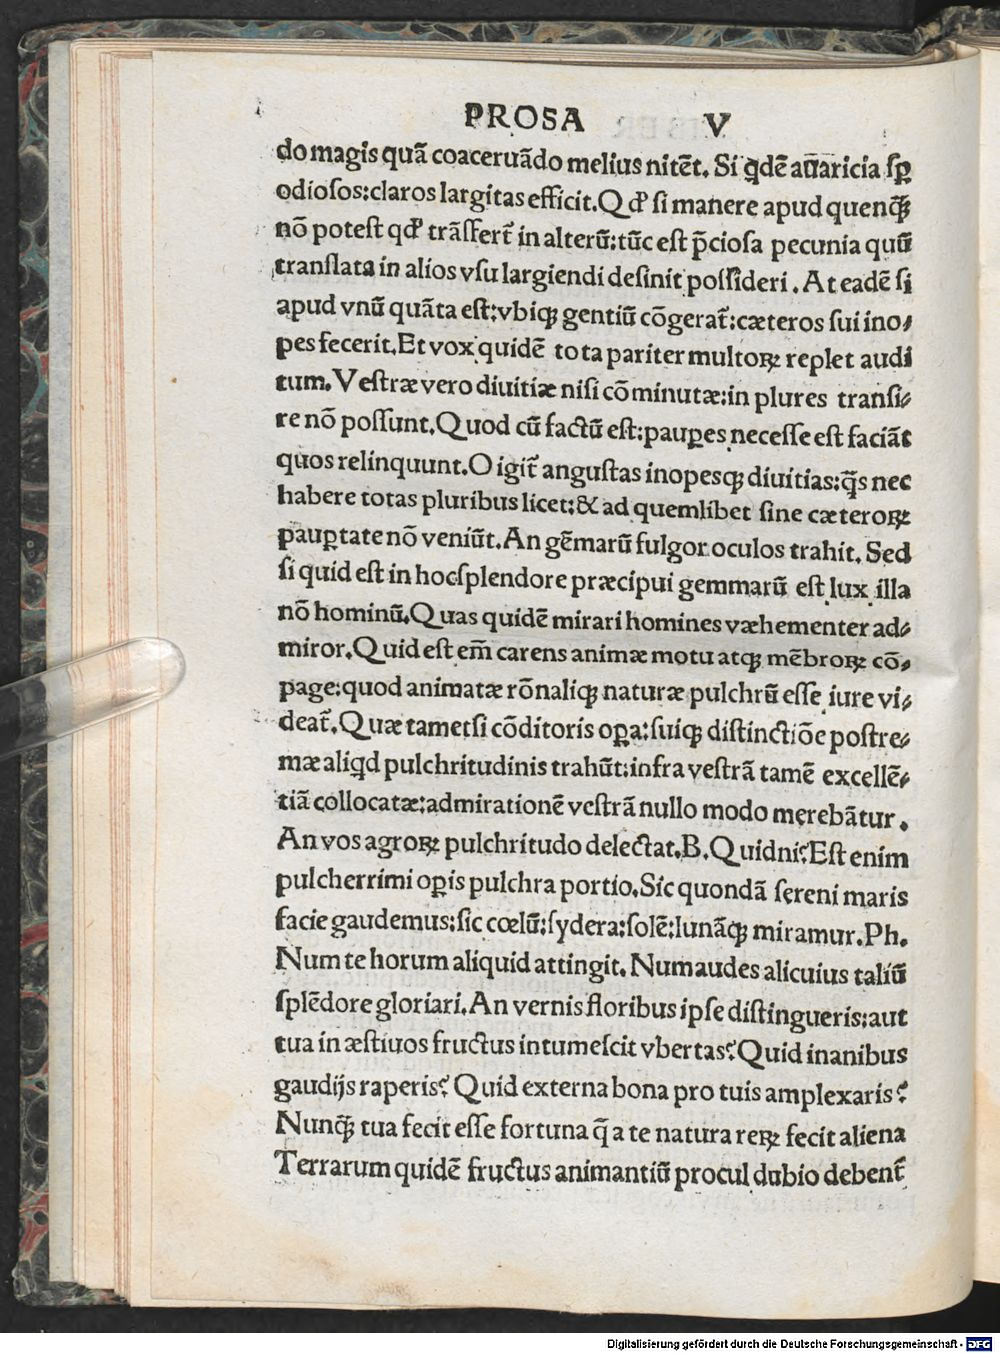 PROSA V
do magis quā coaceruādo melius nitēt. Si qdē auaricia sꝑ
odiosos:claros largitas efficit. Qđ si manere apud quenqꝫ
nō potest qđ trāsfert̃ in alterū:tūc est p̄ciosa pecunia quū
translata in alios vsu largiendi desinit possideri. At eadē si
apud vnū quāta est:vbiqꝫ gentiū cōgerat̃:cæteros sui ino⸗
pes fecerit. Et vox quidē tota pariter multoꝝ replet audi
tum. Vestræ vero diuitiæ nisi cōminutæ:in plures transi⸗
re nō possunt. Quod cū factū est:pauꝑes necesse est faciāt
quos relinquunt. O igit̃ angustas inopesqꝫ diuitias:q̄s nec
habere totas pluribus licet:& ad quemlibet sine cæteroꝝ
pauꝑtate nō veniūt. An gēmarū fulgor oculos trahit. Sed
si quid est in hocsplendore præcipui gemmarū est lux illa
nō hominū. Quas quidē mirari homines væhementer ad⸗
miror. Quid est em̄ carens animæ motu atqꝫ mēbroꝝ cō⸗
page:quod animatæ rōnaliqꝫ naturæ pulchrū esse iure vi⸗
deat̃. Quæ tametsi cōditoris oꝑa:suiqꝫ distinctiōe postre⸗
mæ aliqd pulchritudinis trahūt:infra vestrā tamē excellē⸗
tiā collocatæ:admirationē vestrā nullo modo merebātur.
An vos agroꝝ pulchritudo delectat. B. Quidni? Est enim
pulcherrimi oꝑis pulchra portio. Sic quondā sereni maris
facie gaudemus:sic cœlū:sydera:solē:lunāqꝫ miramur. Ph.
Num te horum aliquid attingit. Num audes alicuius taliū
splēdore gloriari. An vernis floribus ipse distingueris:aut
tua in æstiuos fructus intumescit vbertas? Quid inanibus
gaudijs raperis? Quid externa bona pro tuis amplexaris?
Nunqꝫ tua fecit esse fortuna q̄ a te natura reꝝ fecit aliena
Terrarum quidē fructus animantiū procul dubio debent̃
Digitalisierung gefördert durch die Deutsche Forschungsgemeinschaft - DFG